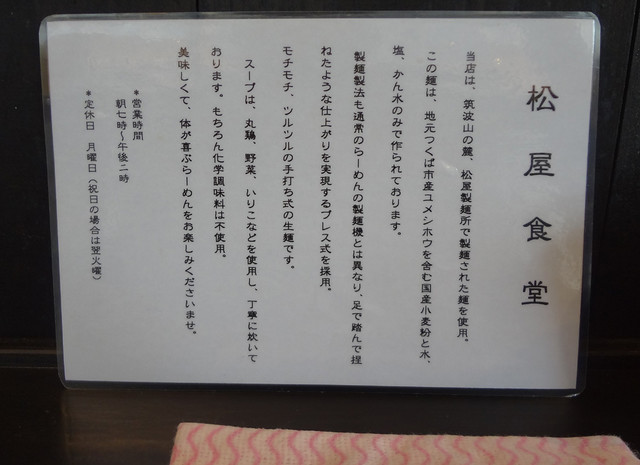 松屋食堂
当店は、筑波山の麓、松屋製麺所で製麺された麺を使用。
この麺は、地元つくば市産ユメシホウを含む国産小麦粉と水、
塩、かん水のみで作られております。
製麺製法も通常のらーめんの製麺機とは異なり、足で踏んで捏
ねたような仕上がりを実現するプレス式を採用。
モチモチ、ツルツルの手打ち式の生麺です。
スープは、丸鶏、野菜、いりこなどを使用し、丁寧に炊いて
おります。もちろん化学調味料は不使用。
美味しくて、体が喜ぶらーめんをお楽しみくださいませ。
*営業時間
朝七時~午後二時
*定休日 月曜日(祝日の場合は翌火曜)